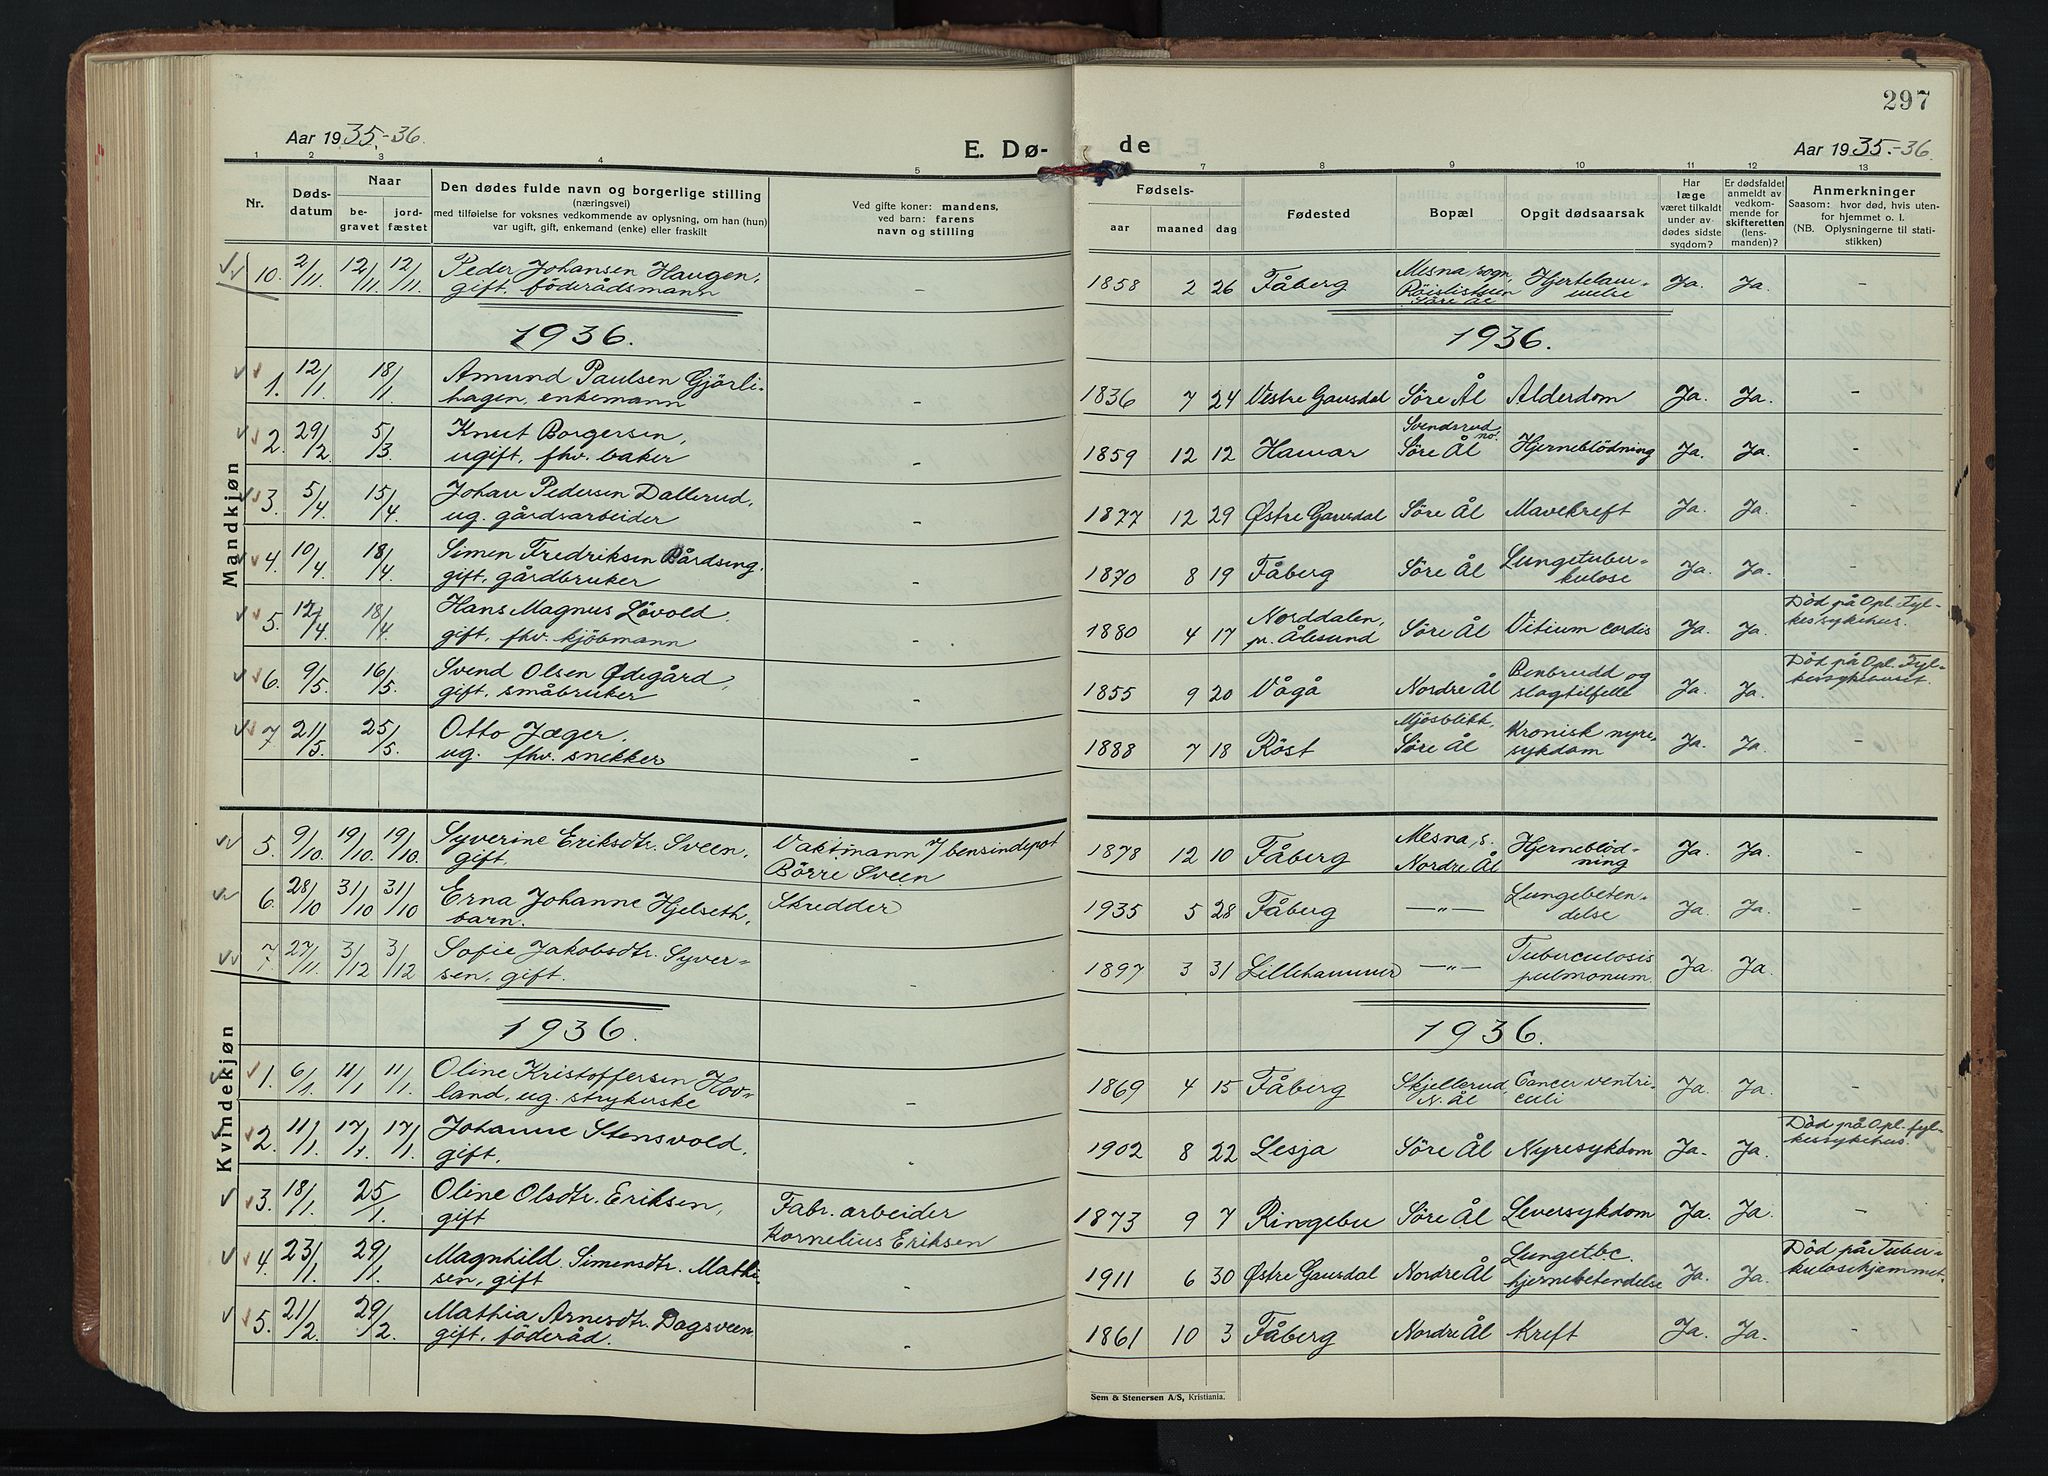 297
Aar 1935.-36.
E. Dø-
de
Aar 1935.-36.
1 2 3 4 5 7 8 9 10 11 12 13
Nr.
Døds-
datum
Naar
be-
gravet
jord-
fæstet
Den dødes fulde navn og borgerlige stilling
(næringsvei)
med tilføielse for voksnes vedkommende av oplysning, om han (hun)
var ugift, gift, enkemand (enke) eller fraskilt
Ved gifte koner: mandens,
ved barn: farens
navn og stilling
Fødsels-
aar maaned dag
Fødested
Bopæl
Opgit dødsaarsak
Har
læge
været tilkaldt
under av-
dødes sidste
sygdom?
Er dødsfaldet
anmeldt av
vedkom-
mende for
skifteretten
(lens-
manden)?
Anmerkninger
Saasom: hvor død, hvis uten-
for hjemmet o. l.
(NB. Oplysningerne til stati-
stikken)
Mandkjøn
10. 2/11 12/11 12/11 Peder Johansen Haugen,
gift, föderådsmann
1858 2 26 Fåberg Mesna sogn, Söre Ål Hjertelam-
melse Ja. Ja. -
1936.
1936.
1. 12/1 18/1 Amund Paulsen Gjörli-
hagen, enkemann -
1836 7 24 Vestre Gausdal Söre Ål Alderdom Ja. Ja. -
2. 29/2 5/3 Knut Borgersen,
ugift, fhv. baker -
1859 12 12 Hamar Svendsrud no. Söre Ål Hjerneblödning Ja. Ja. -
3. 5/4 15/4 Johan Pedersen Dallerud,
ug. gårdsarbeider -
1877 12 29 Østre Gausdal Söre Ål Mavekreft Ja. Ja. -
4. 10/4 18/4 Simen Fredriksen Bårdseng,
gift, gårdbruker -
1870 8 19 Fåberg Söre Ål Lungetuber-
kulose Ja. Ja. -
5. 12/4 18/4 Hans Magnus Lövold,
gift, fhv. kjöbmann -
1880 4 17 Norddalen,
pr. Ålesund Söre Ål Vitium cordis Ja. Ja. Död på Opl. Fyl-
kessykehus.
6. 9/5 16/5 Svend Olsen Ødegård,
gift, småbruker -
1855 9 20 Vågå Nordre Ål Benbrudd og
slagtilfelle Ja. Ja. Död på Opl. Fyl-
kessykehuset.
7 21/5 25/5 Otto Jæger,
ug. fhv. snekker -
1888 7 18 Röst Mjösblikk,
Söre Ål Kronisk nyre-
sykdom Ja. Ja. -
Kvindekjøn
5. 9/10 19/10 19/10 Syverine Eriksdtr. Sveen,
gift. Vaktmann v/ bensindepot
Börre Sveen
1878 12 10 Fåberg Mesna, s.
Nordre Ål Hjerneblöd-
ning Ja. Ja. -
6. 28/10 31/10 31/10 Erna Johanne Hjelseth,
barn. Skredder
1935 5 28 Fåberg —"— Lungebeten-
delse Ja. Ja. -
7. 27/11 3/12 3/12 Sofie Jakobsdtr. Syver-
sen, gift. -
1897 3 31 Lillehammer —"— Tuberculosis
pulmonum. Ja. Ja. -
1936.
1936.
1. 6/1 11/1 11/1. Oline Kristoffersen Hov-
land, ug. strykerske -
1869 4 15 Fåberg Skjellerud,
N. Ål Cancer ventri-
culi Ja. Ja. -
2. 11/1 17/1 17/1 Johanne Stensvold,
gift, -
1902 8 22 Lesja Söre Ål Nyresykdom Ja. Ja. Död på Opl. fyl-
kessykehus.
3. 18/1 25/1. Oline Olsdtr. Eriksen,
gift Fabr. arbeider
Kornelius Eriksen
1873 9 7 Ringebu Söre Ål Leversykdom Ja. Ja. -
4. 23/1 29/1 Magnhild Simensdtr. Mathi-
sen, gift
1911 6 30 Østre Gausdal Nordre Ål Lungetbc.
hjernebetendelse Ja. Ja. Död på Tuber-
kulosehjemmet.
5. 21/2 29/2. Mathia Arnesdtr. Dagsveen
gift, föderåd. -
1861 10 3 Fåberg Nordre Ål Kreft Ja. Ja. -
Sem & Stenersen A/S, Kristiania.